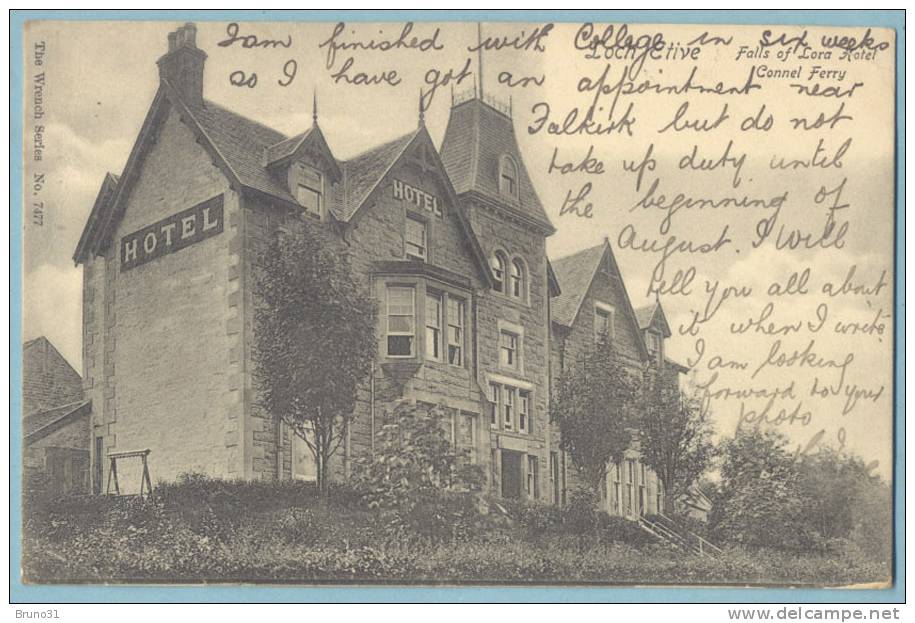 I am finished with College in six weeks
so I have got an appointment near
Falkirk but do not
take up duty until
the beginning of
August. I will
tell you all about
it when I write.
I am looking
forward to your
photo
Loch Etive
Falls of Lora Hotel
Connel Ferry
The Wrench Series No. 7477
HOTEL
HOTEL
Bruno31
delcampe.net